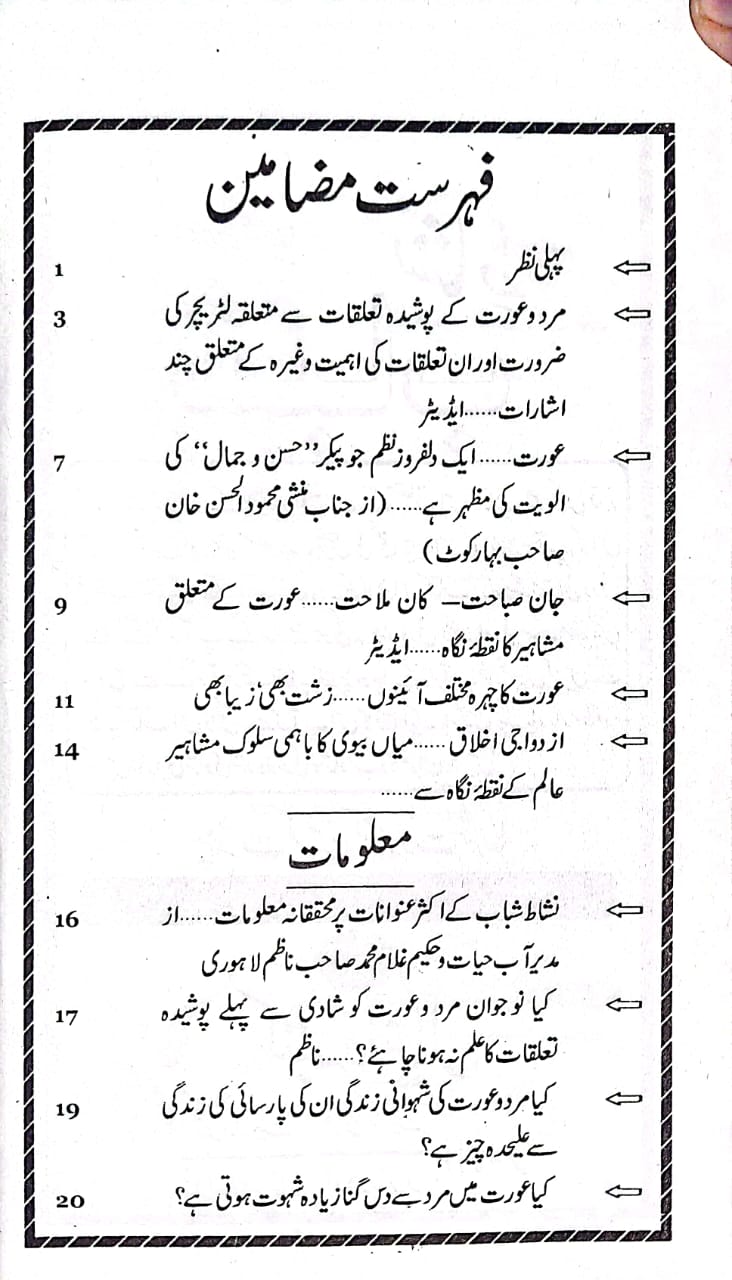 فہرست مضامین
پہلی نظر 1
مرد وعورت کے پوشیدہ تعلقات سے متعلقہ لٹریچر کی 3
ضرورت اوران تعلقات کی اہمیت وغیرہ کے متعلق چند
اشارات......ایڈیٹر
عورت......ایک دلفروز نظم جو پیکر ”حسن و جمال“ کی 7
الویت کی مظہر ہے......(از جناب منشی محمود الحسن خان
صاحب بہارکوٹ)
جان صباحت— کان ملاحت......عورت کے متعلق 9
مشاہیر کا نقطۂ نگاہ......ایڈیٹر
عورت کا چہرہ مختلف آئینوں......زشت بھی’ زیبا بھی 11
ازدواجی اخلاق......میاں بیوی کا باہمی سلوک مشاہیر 14
عالم کے نقطۂ نگاہ سے......
معلومات
نشاط شباب کے اکثر عنوانات پر محققانہ معلومات......از 16
مدیر آب حیات و حکیم غلام محمد صاحب ناظم لاہوری
کیا نوجوان مرد وعورت کو شادی سے پہلے پوشیدہ 17
تعلقات کا علم نہ ہونا چاہئے؟......ناظم
کیا مرد وعورت کی شہوانی زندگی ان کی پارسائی کی زندگی 19
سے علیحدہ چیز ہے؟
کیا عورت میں مرد سے دس گنا زیادہ شہوت ہوتی ہے؟ 20